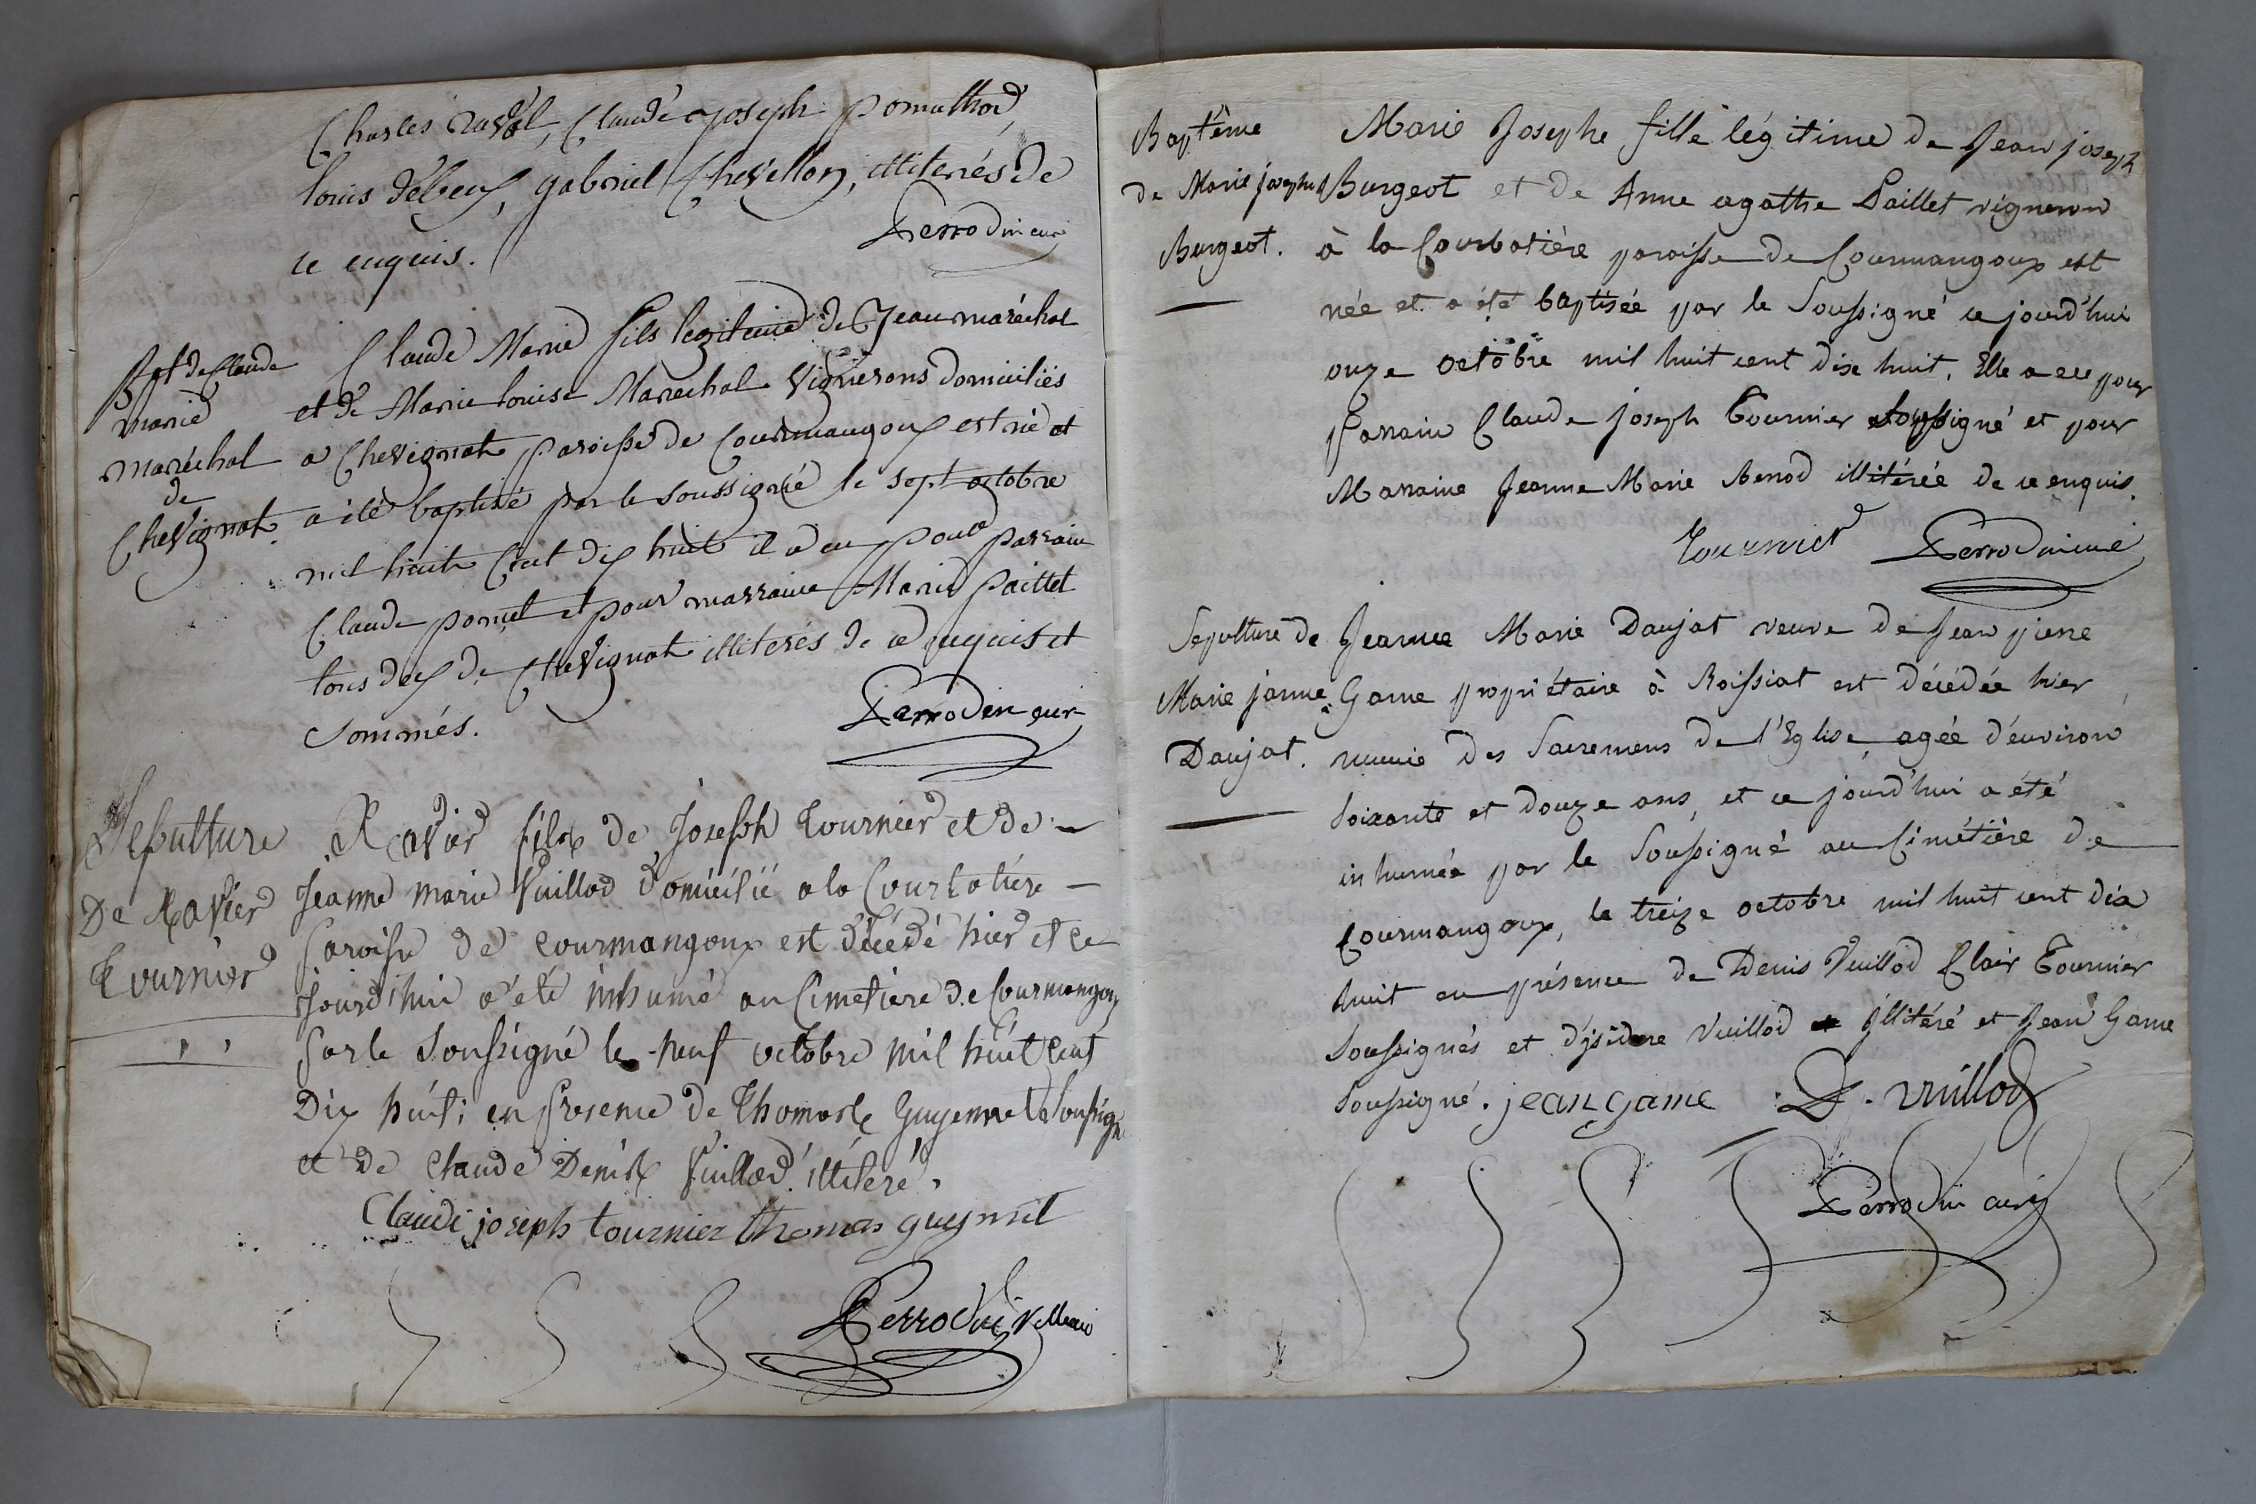 Charles ravet, Claude joseph pomathod,
louis débeuf, gabriel Chevillon, illiterés de
ce enquis.
Perrodin curé
Bpt de Claude
marie
maréchal
de
Chevignat.
Claude Marie fils legitime de Jean maréchal
et de Marie louise Marechal vignerons domiciliés
a Chevignat paroisse de Courmangoux est né et
a été baptisé par le soussigné le sept octobre
mil huit Cent dix huit il a eu pour parrain
Claude pomet et pour marraine Marie paillet
tous deux de Chevignat illiterés de ce enquis et
sommés.
Perrodin curé
Sepulture
De Xavier
tournier
Xavier fils de Joseph tournier et de
Jeanne marie Vuillod domicilié a la Courbatiere
paroisse de courmangoux est décédé hier et ce
Jourd'hui a été inhumé au Cimetiere de Courmangoux
par le soussigné le neuf octobre mil huit cent
Dix huit; en presence de thomas guyennet soussigné
et de claude Denis Vuillod illiteré.
Claude joseph tournier thomas guyennet
Perrodin
Baptême
de Marie josephe
Burgeot.
Marie Josephe fille légitime de Jean joseph
Burgeot et de Anne agathe Paillet vigneron
à la Courbatière paroisse de Courmangoux est
née et a été baptisée par le Soussigné ce jourd'hui
onze octobre mil huit cent dix huit. Elle a eu pour
Parrain Claude joseph Tournier soussigné et pour
Marraine Jeanne Marie Benod illitérée de ce enquis.
tournier Perrodin curé
Sepulture de
Marie janne
Daujat.
Jeanne Marie Daujat veuve de Jean pierre
Game propriétaire à Roissiat est décédée hier
munie des Sacremens de l'Eglise, agée d'environ
soixante et douze ans, et ce jourd'hui a été
inhumée par le Soussigné au Cimétière de
Courmangoux, le treize octobre mil huit cent dix
huit en présence de Denis Vuillod Clair Tournier
soussignés et d'isidore Vuillod illitéré et Jean Game
soussigné. jean game D. vuillod
Perrodin curé